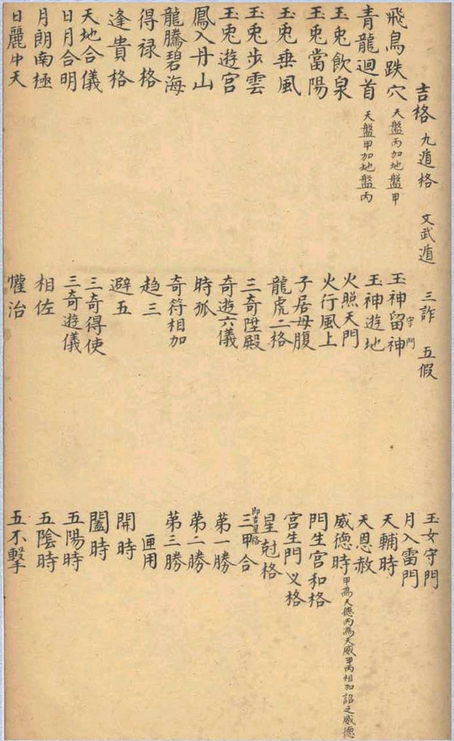 吉格 九遁格 文武遁 三詐 五假
飛鳥跌穴 天盤丙加地盤甲
青龍迴首 天盤甲加地盤丙
玉兎飲泉
玉兎當陽
玉兎垂風
玉兎步雲
玉兎遊宮
鳳入丹山
龍騰碧海
得禄格
逢貴格
天地合儀
日月合明
月朗南極
日麗中天
玉神留神 守門
玉神遊地
火照天門
火行風上
子居母腹
龍虎二格
三奇陞殿
奇遊六儀
時孤
奇符相加
趋三
避五
三奇得使
三奇遊儀
相佐
懽治
玉女守門
月入雷門
天輔時
天恩赦
威德時 甲為天德丙為天威甲丙相加詔之威德
門生宮和格
宮生門义格
星尅格
三甲合
第一勝
第二勝
第三勝
匣用
開時
闔時
五陽時
五陰時
五不擊